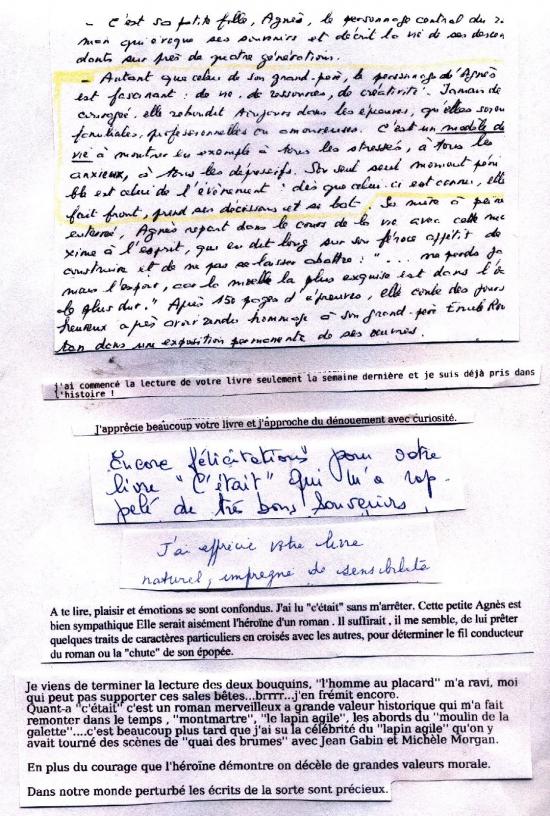 - C'est sa petite fille, Agnès, le personnage central du ro
man qui évoque ses souvenirs et décrit la vie de ses descen
dants sur près de quatre générations.
- Autant que celui de son grand-père, le personnage d'Agnès
est fascinant : de vie, de ressources, de créativité. Jamais de
elle rebondit toujours dans les épreuves, qu'elles soient
familiales, professionnelles ou amoureuses. C'est un modèle de
vie à montrer en exemple à tous les stressés, à tous les
anxieux, à tous les dépressifs. Son seul seul moment péni
ble est celui de l'évènement : dès que celui-ci est connu, elle
fait front, prend ses décisions et se bat. Sa mère à peine
enterrée, Agnès repart dans le cours de la vie avec cette ma
xime à l'esprit, qui en dit long sur son féroce appétit de
construire et de ne pas se laisser abattre : "... ne perds ja
mais l'espoir, car la moelle la plus exquise est dans l'os
le plus dur." Après 150 pages d'épreuves, elle conte des jours
heureux après avoir rendu hommage à son grand-père Emile Bou
dans une exposition permanente de ses oeuvres.
j'ai commencé la lecture de votre livre seulement la semaine dernière et je suis déjà pris dans
l'histoire !
J'apprécie beaucoup votre livre et j'approche du dénouement avec curiosité.
Encore félicitations pour votre
livre "C'était" qui m'a rap-
pelé de très bons souvenirs
J'ai apprécié votre livre
naturel, imprégné de sensibilité
A te lire, plaisir et émotions se sont confondus. J'ai lu "c'était" sans m'arrêter. Cette petite Agnès est
bien sympathique Elle serait aisément l'héroïne d'un roman . Il suffirait , il me semble, de lui prêter
quelques traits de caractères particuliers en croisés avec les autres, pour déterminer le fil conducteur
du roman ou la "chute" de son épopée.
Je viens de terminer la lecture des deux bouquins, "l'homme au placard" m'a ravi, moi
qui peut pas supporter ces sales bêtes...brrr...j'en frémit encore.
Quant-a "c'était" c'est un roman merveilleux a grande valeur historique qui m'a fait
remonter dans le temps , "montmartre", "le lapin agile", les abords du "moulin de la
galette"....c'est beaucoup plus tard que j'ai su la célébrité du "lapin agile" qu'on y
avait tourné des scènes de "quai des brumes" avec Jean Gabin et Michèle Morgan.
En plus du courage que l'héroïne démontre on décèle de grandes valeurs morale.
Dans notre monde perturbé les écrits de la sorte sont précieux.